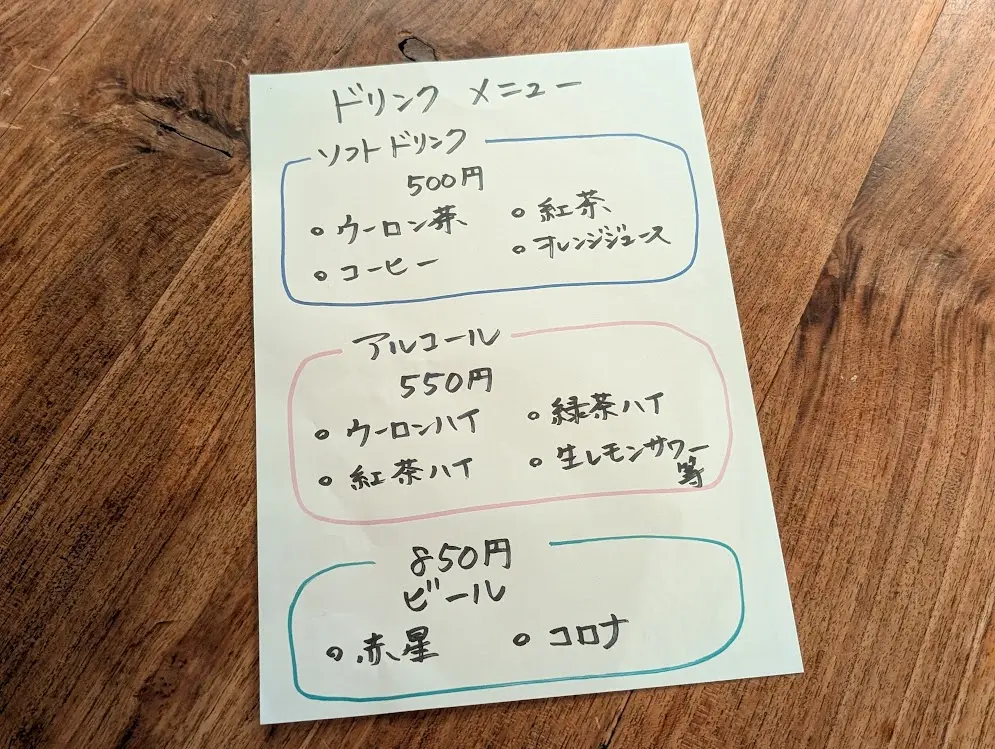 ドリンク メニュー
ソフトドリンク
500円
○ ウーロン茶 ○ 紅茶
○ コーヒー ○ オレンジジュース
アルコール
550円
○ ウーロンハイ ○ 緑茶ハイ
○ 紅茶ハイ ○ 生レモンサワー
等
850円
ビール
○ 赤星 ○ コロナ